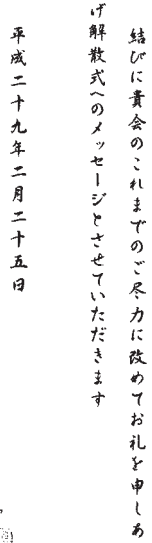 結びに貴会のこれまでのご尽力に改めてお礼を申しあ
げ解散式へのメッセージとさせていただきます
平成二十九年二月二十五日